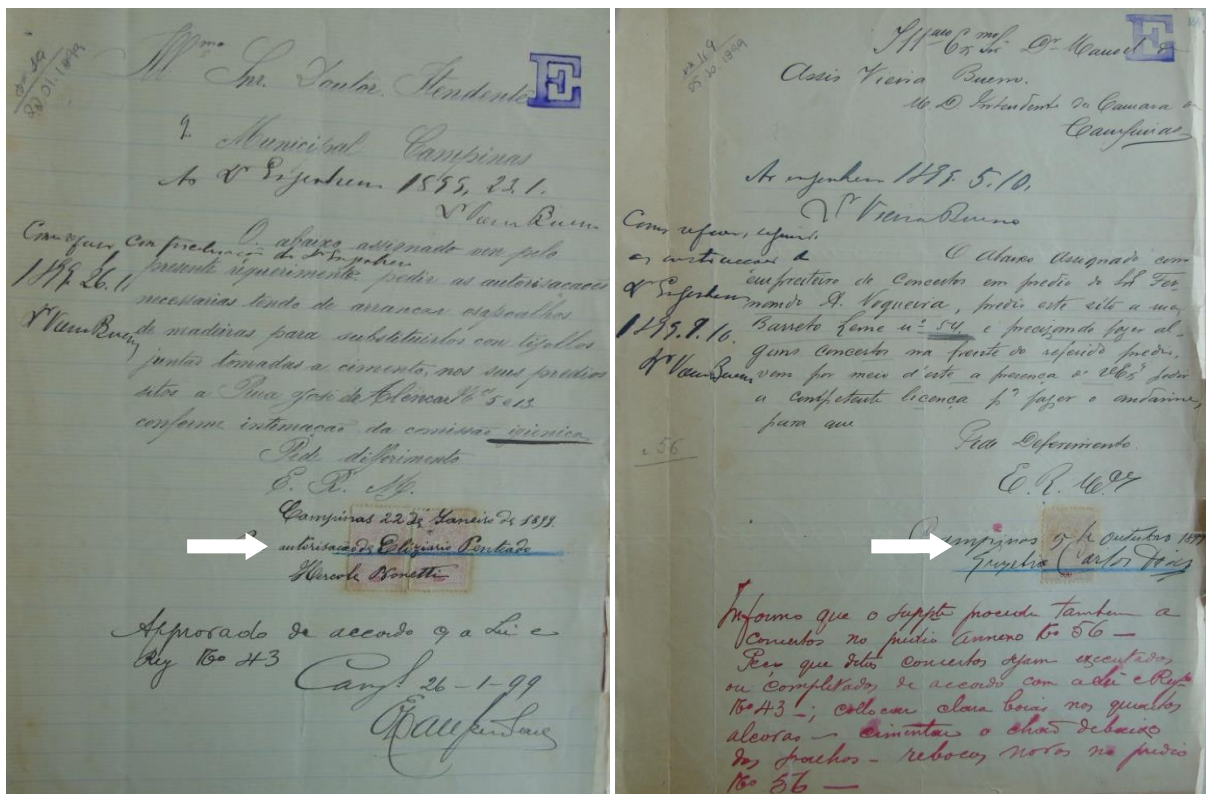 Illmo Snr. Doutor Itendente
E
Municipal Campinas
Ao Dr Engenheiro 1899, 23.1.
Dr Vieira Bueno
O abaixo assignado vem pelo
presente riquerimento pedir as autorisacaões
necessarias tendo de arrancar osasoalhos
de madeiras para substituirlos con tigollos
juntas tomadas a cimento, nos sus predios
sitos a Rua José de Alencar Nos 5 e 13
conforme intimação da comissão igienica
Como requer, com
1899. 26.1.
Dr Vieira Bueno
Pede differimento
E. R. M.
Campinas 22 de Janeiro de 1899.
autorisacão de Elisiario Penteado
Hercole Bonetti
Approvado de accordo a Lei e
Reg No 43
Camps 26-1-99
22.01.1899
Illmo Exmo Snr Dr Manoel de
Assis Vieira Bueno.
M D Intendente da Camara de
Campinas
E
05.10.1899
Ao engenheiro 1899. 5.10.
Dr Vieira Bueno
Como requer,
as instrucções do
Dr Engenheiro
1899. 9.10.
Dr Vieira Bueno
O Abaixo Assignado como
empreiteiro de Concertos em predio do Sr Fer
nando A. Nogueira, predio este sito a rua
Barreto Leme no 54, e precizando fazer al-
guns concertos na frente do referido predio,
vem por meio d'este a presença de VExa pedir
a competente licença pa fazer o andaime,
para que
Pede Deferimento.
E. R. Mce
n. 56
Campinas 5 de Outubro 1899
Carlos Dias
Informo que o suppte procede tambem a
concertos no predio annexo No 56 —
Peço que ditos concertos sejam executados
ou completados de accordo com a Lei e Reg
No 43 —; collocar clara boias nos quartos
alcovas — cimentar o chão debaixo
dos soalhos — rebocos novos no predio
No 56 —